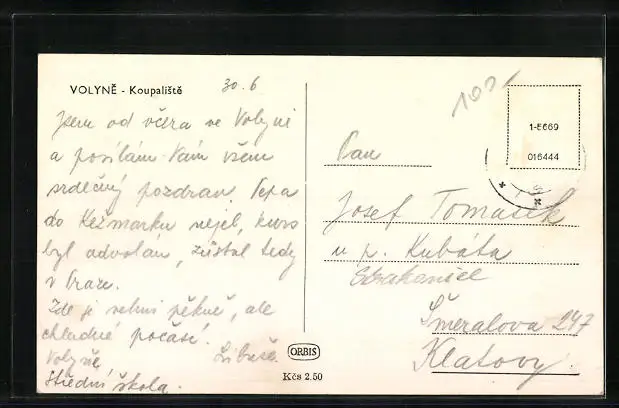 VOLYNĚ - Koupaliště
30. 6
Jsem od včera ve Volyni
a posílám Vám všem
srdečný pozdrav. Pepa
do Kežmarku nejel, kurs
byl odvolán, zůstal tedy
v Praze.
Zde je velmi pěkně, ale
chladné počasí.
Volyně Libuše.
Střední škola.
ORBIS
Kčs 2.50
1-E669
016444
Pan
Josef Tomášek
u p. Kubáta
Strakonice
Šmeralova 247
Klatovy.